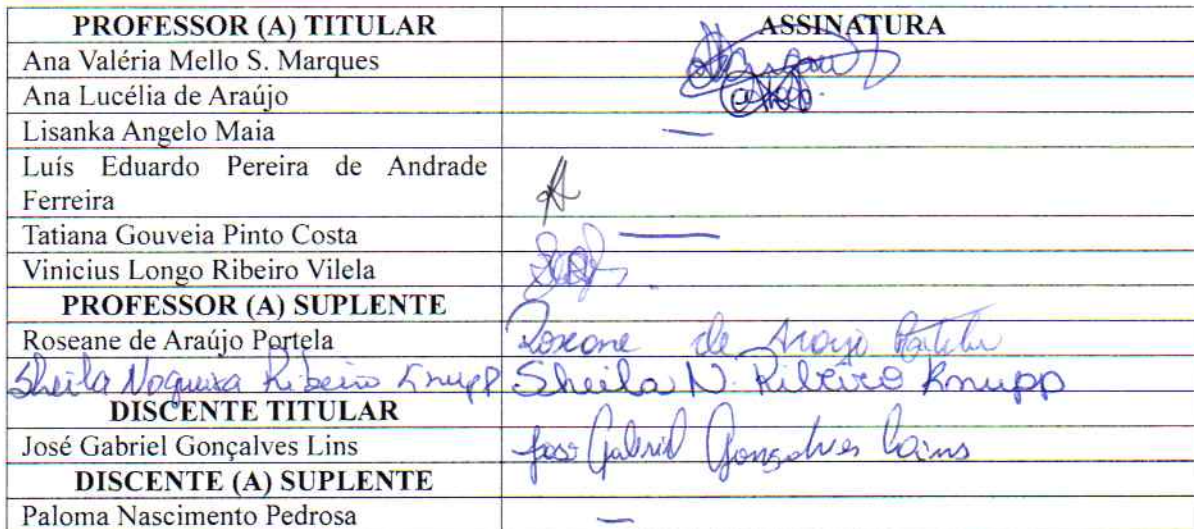 PROFESSOR (A) TITULAR ASSINATURA
Ana Valéria Mello S. Marques
Ana Lucélia de Araújo
Lisanka Angelo Maia —
Luís Eduardo Pereira de Andrade
Ferreira
Tatiana Gouveia Pinto Costa —
Vinicius Longo Ribeiro Vilela
PROFESSOR (A) SUPLENTE
Roseane de Araújo Portela Roseane de Araújo Portela
Sheila Nogueira Ribeiro Knupp Sheila N. Ribeiro Knupp
DISCENTE TITULAR
José Gabriel Gonçalves Lins José Gabriel Gonçalves Lins
DISCENTE (A) SUPLENTE
Paloma Nascimento Pedrosa —